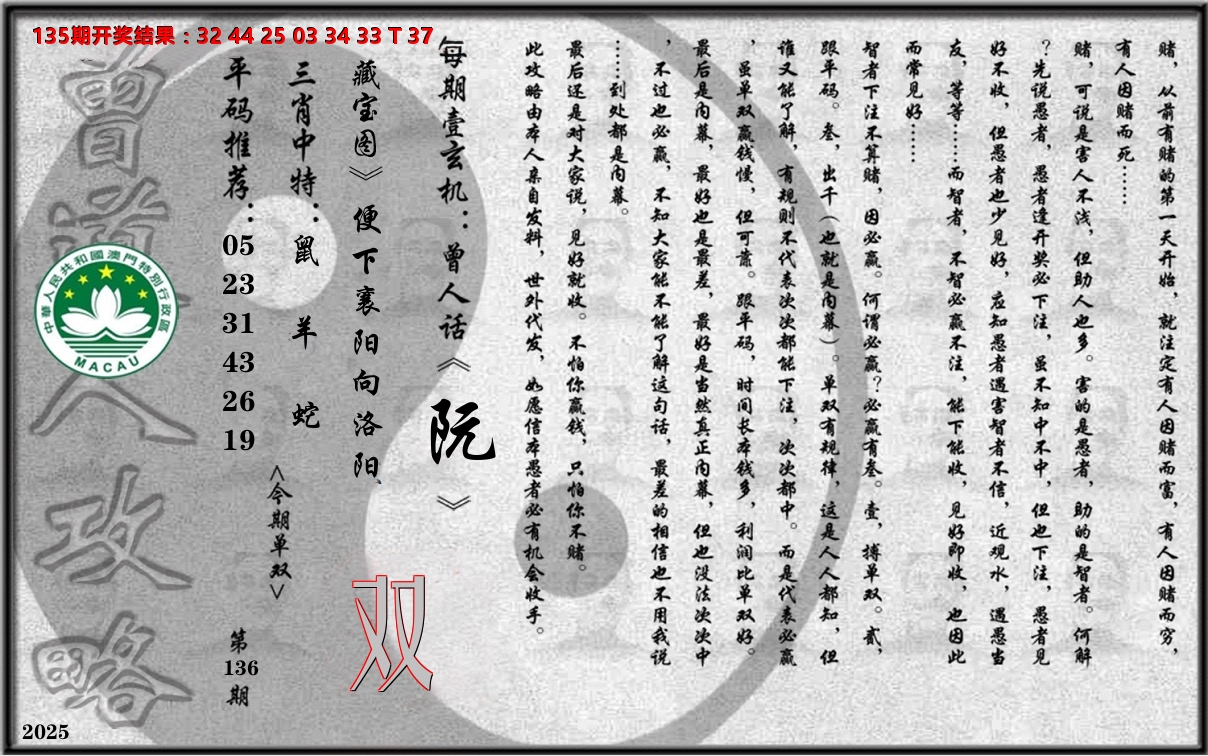 135期开奖结果：32 44 25 03 34 33 T 37
赌，从前有赌的第一天开始，就注定有人因赌而富，有人因赌而穷，
有人因赌而死……
赌，可说是害人不浅，但助人也多。害的是愚者，助的是智者。何解
？先说愚者，愚者逢开奖必下注，虽不知中不中，但也下注，愚者见
好不收，但愚者也少见好，应知愚者遇害智者不信，近观水，遇愚当
友，等等……而智者，不智必赢不注，能下能收，见好即收，也因此
而常见好……
智者下注不算赌，因必赢。何谓必赢？必赢有叁。壹，搏单双。贰，
跟平码。叁，出千（也就是内幕）。单双有规律，这是人人都知，但
谁又能了解，有规则不代表次次都能下注，次次都中。而是代表必赢
，虽单双赢钱慢，但可靠。跟平码，时间长本钱多，利润比单双好。
最后是内幕，最好也是最差，最好是当然真正内幕，但也没法次次中
，不过也必赢，不知大家能不能了解这句话，最差的相信也不用我说
……到处都是内幕。
最后还是对大家说，见好就收。不怕你赢钱，只怕你不赌。
此攻略由本人亲自发料，世外代发，如愿信本愚者必有机会收手。
每期壹玄机：曾人话《阮》
藏宝图》便下襄阳向洛阳、
双
三肖中特：鼠 羊 蛇
<今期单双>
平码推荐：05 23 31 43 26 19
第136期
曾道人攻略
中華人民共和國澳門特別行政區
MACAU
2025